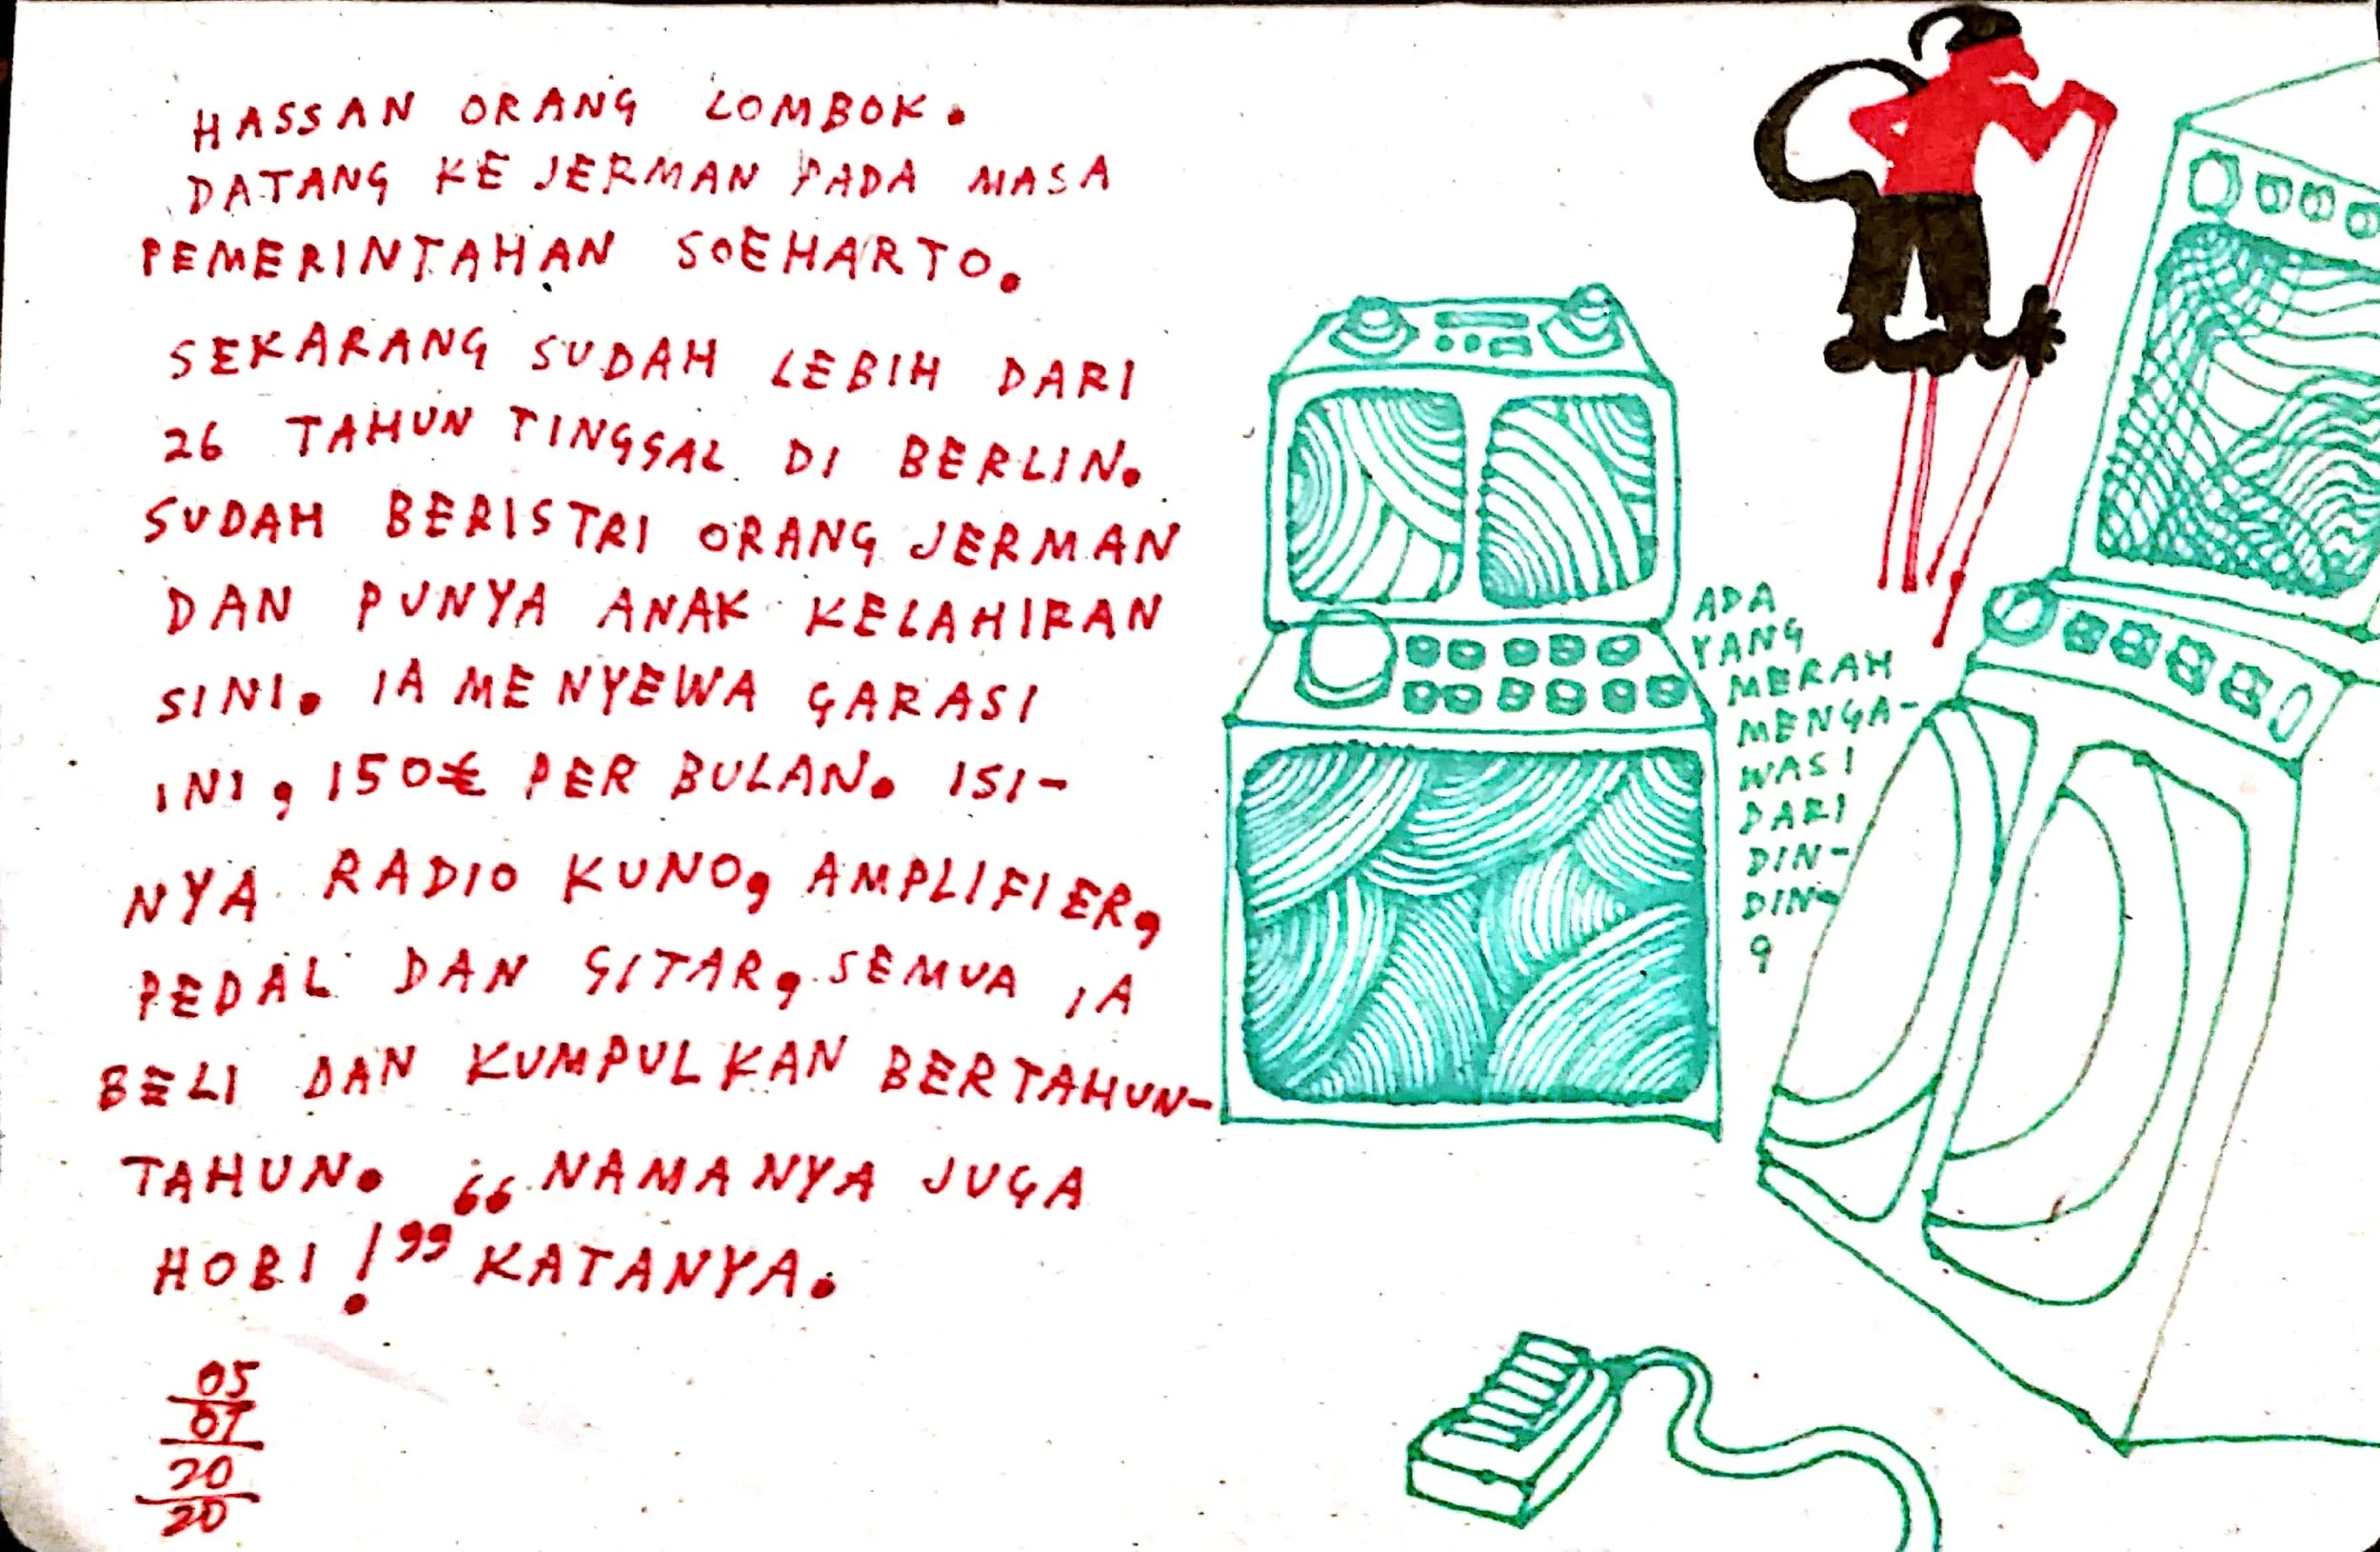 HASSAN ORANG LOMBOK.
DATANG KE JERMAN PADA MASA
PEMERINTAHAN SOEHARTO.
SEKARANG SUDAH LEBIH DARI
26 TAHUN TINGGAL DI BERLIN.
SUDAH BERISTRI ORANG JERMAN
DAN PUNYA ANAK KELAHIRAN
SINI. IA MENYEWA GARASI
INI, 150€ PER BULAN. ISI-
NYA RADIO KUNO, AMPLIFIER,
PEDAL DAN GITAR, SEMUA IA
BELI DAN KUMPULKAN BERTAHUN-
TAHUN. “NAMANYA JUGA
HOBI!” KATANYA.
05
07
20
20
ADA
YANG
MERAH
MENGA-
WASI
DARI
DIN-
DIN-
G